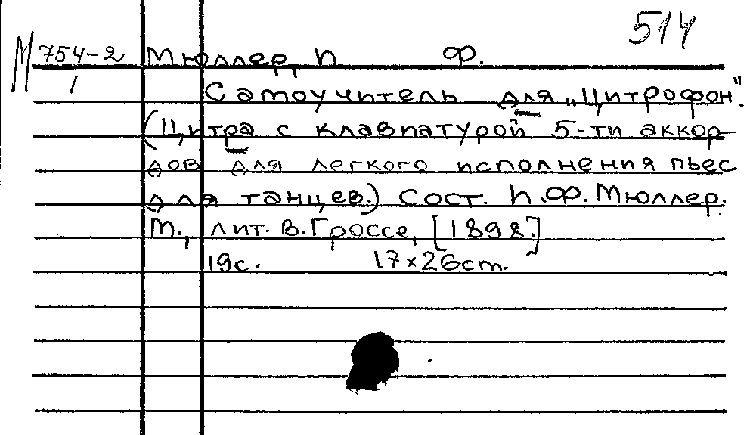 514
М 754-2 Мюллер, П Ф.
1
Самоучитель для „Цитрофон".
(Цитра с клавиатурой 5-ти аккор
дов для легкого исполнения пьес
для танцев.) Сост. П.Ф. Мюллер.
М., лит. В. Гроссе, [1898.]
19с. 17×26см.